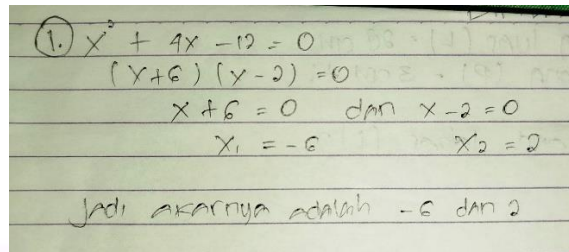 1. x² + 4x - 12 = 0
(x+6) (x-2) = 0
x + 6 = 0 dan x - 2 = 0
x₁ = -6 x₂ = 2
Jadi akarnya adalah -6 dan 2